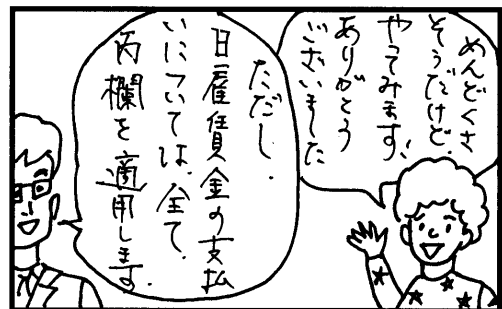 めんどくさ
そうだけど、
やってみます、
ありがとう
ございました
ただし、
日雇賃金の支払
いについては、全て、
丙欄を適用します。